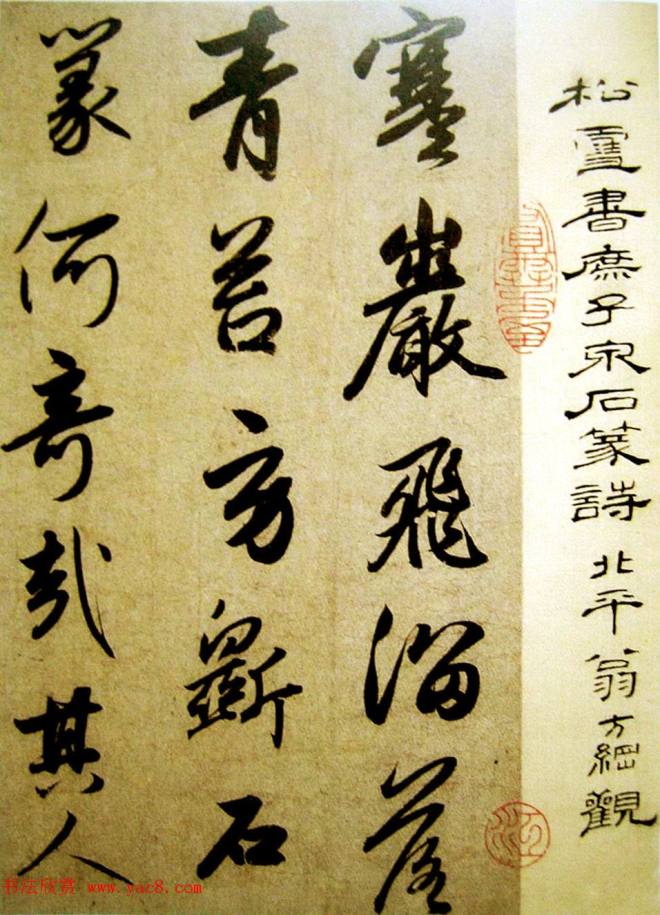 松雪書庶子泉石篆詩 北平翁方綱觀
寒巖飛溜落
青苔旁斲石
篆何奇哉其人
书法欣赏 www.yac8.com